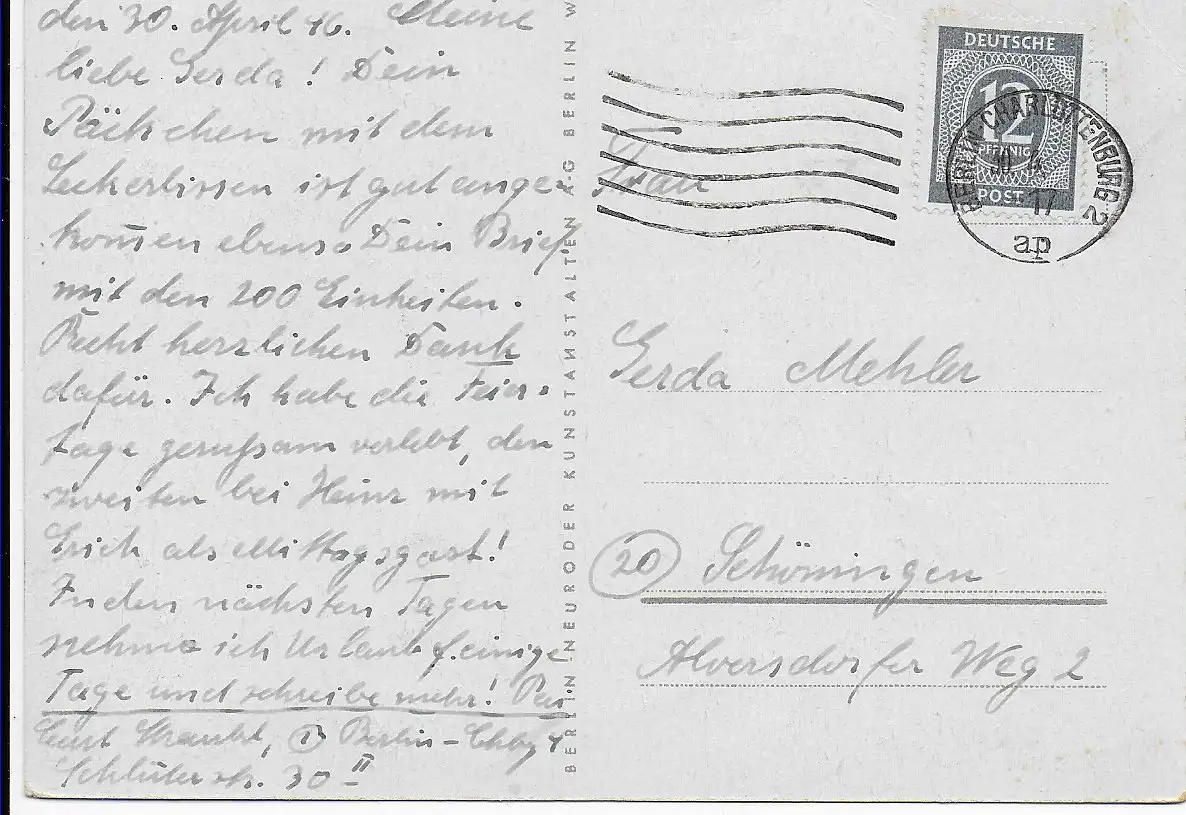 den 30. April 46. Meine
liebe Gerda! Dein
Päckchen mit dem
Leckerbissen ist gut ange-
kom̄en ebenso Dein Brief
mit den 200 Einheiten.
Recht herzlichen Dank
dafür. Ich habe die Feier-
tage geruhsam verlebt, den
zweiten bei Heinz mit
Erich als Mittagsgast!
In den nächsten Tagen
nehme ich Urlaub f. einige
Tage und schreibe mehr!
Curt ① Berlin-Chbg 4
Schlüterstr. 30 II
BERLIN NEURODER KUNSTANSTALTEN AG BERLIN W
DEUTSCHE
12
PFENNIG
POST
BERLIN CHARLOTTENBURG 2
17
ap
Frau
Gerda Mehler
(20) Schöningen
Alversdorfer Weg 2